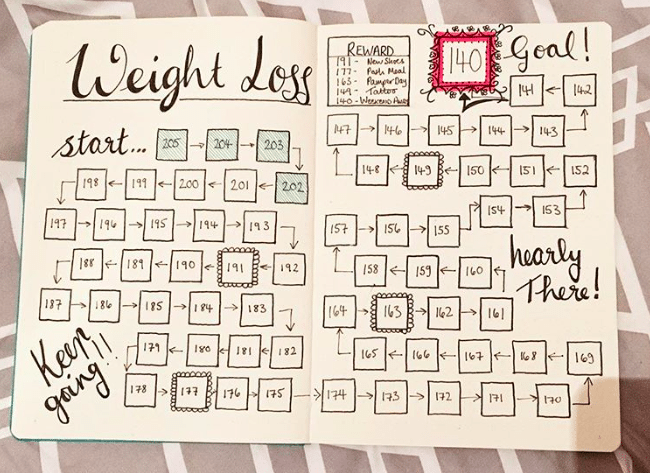 Weight Loss
start...
205 → 204 → 203
198 ← 199 ← 200 ← 201 ← 202
197 → 196 → 195 → 194 → 193
188 ← 189 ← 190 ← 191 ← 192
187 → 186 → 185 → 184 → 183
179 ← 180 ← 181 ← 182
178 → 177 → 176 → 175
Keep
going!!
REWARD
191 - New Shoes
177 - Posh Meal
163 - Pamper Day
149 - Tattoo
140 - Weekend Away
140
Goal!
141 ← 142
147 → 146 → 145 → 144 → 143
148 ← 149 ← 150 ← 151 ← 152
154 → 153
157 → 156 → 155
158 ← 159 ← 160
nearly
There!
164 → 163 → 162 → 161
165 ← 166 ← 167 ← 168 ← 169
174 → 173 → 172 → 171 → 170